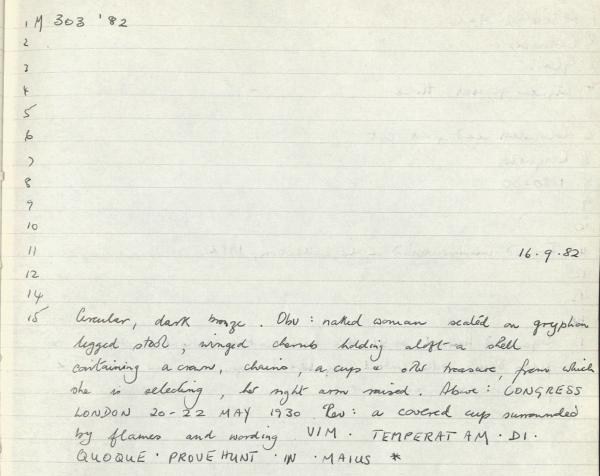 1 M 303 '82
2
3
4
5
6
7
8
9
10
11 16.9.82
12
14
15 Circular, dark bronze. Obv: naked woman seated on gryphon
legged stool; winged cherub holding aloft a shell
containing a crown, chains, a cup & other treasure, from which
she is selecting, her right arm raised. Above: CONGRESS
LONDON 20-22 MAY 1930 Rev: a covered cup surrounded
by flames and wording VIM · TEMPERAT AM · DI ·
QUOQUE · PROVEHUNT · IN · MAIUS *